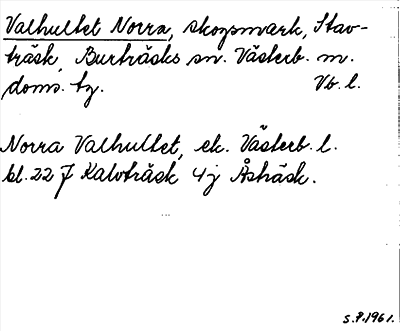 Valhultet Norra, skogsmark, Stav-
träsk, Burträsks sn. Västerb. m.
doms. tg. Vb. l.
Norra Valhultet, ek. Västerb. l.
bl. 22 J Kalvträsk 4 j Åsträsk.
S.P. 1961.